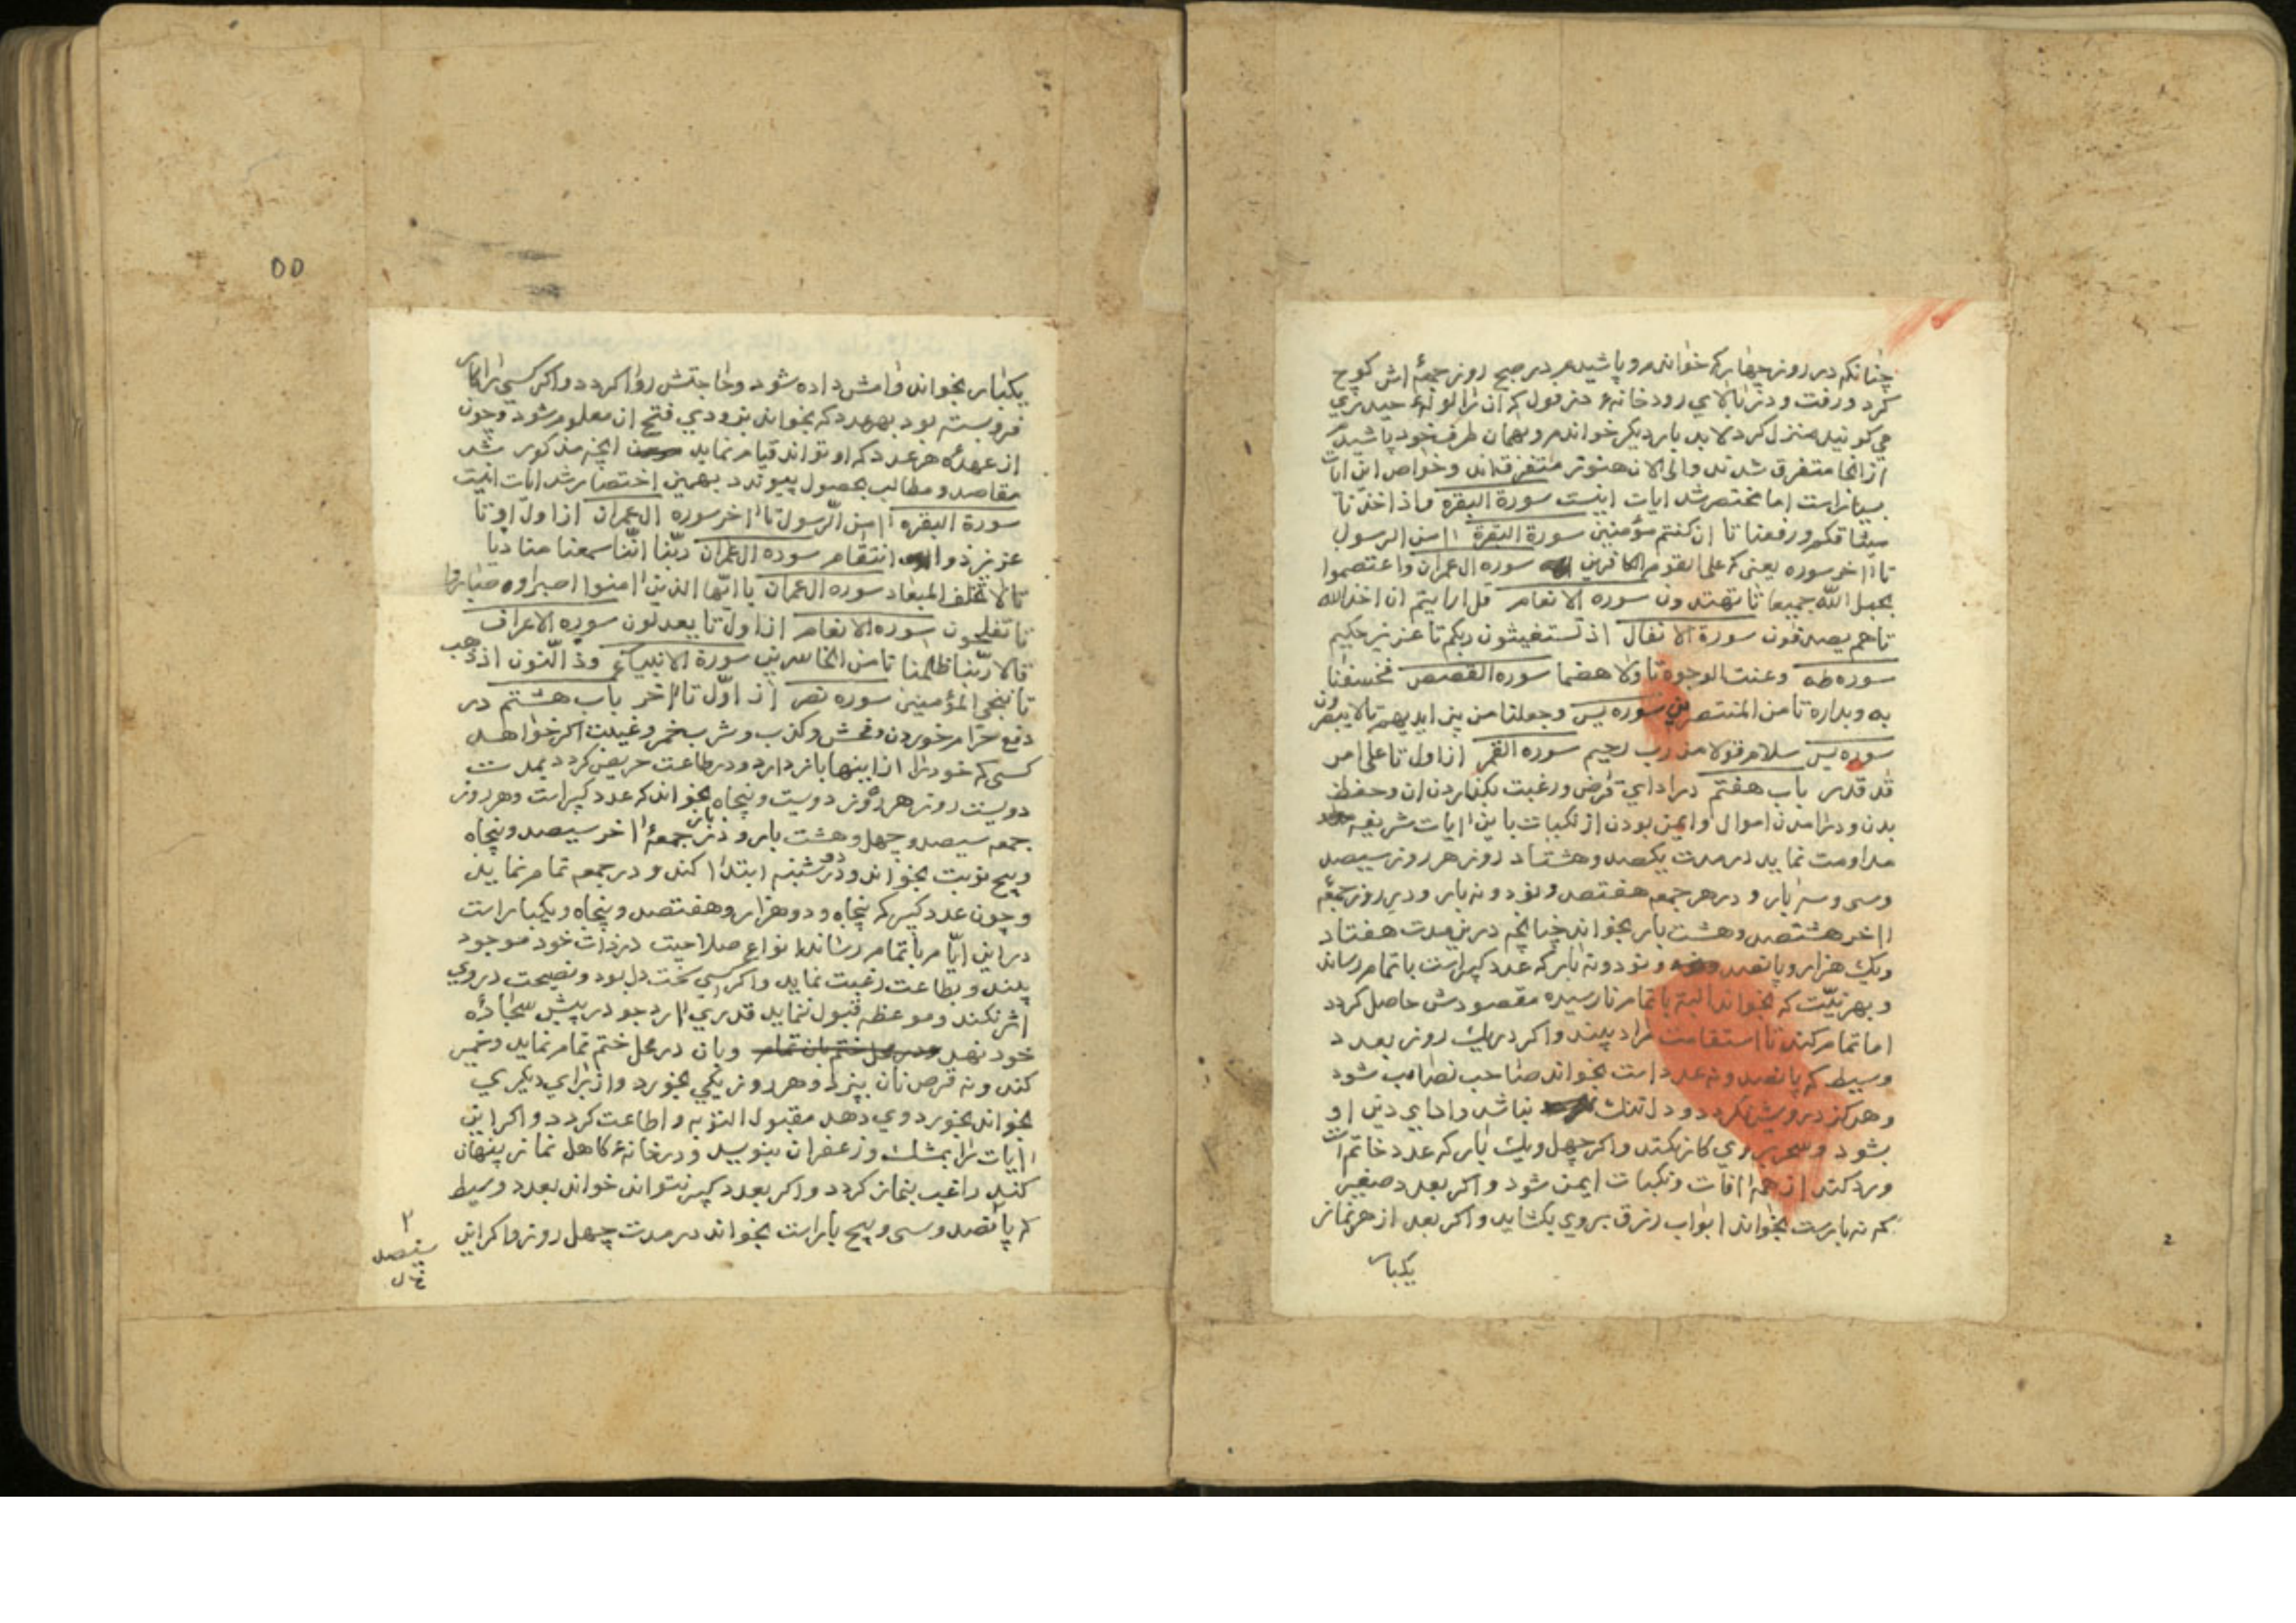 چنانکه در روز چهار که خوانده و پاشیده در صبح روز جمعهٔ اش کوچ
کرد و رفت و در بالای رودخانهٔ دزفول که آن را لولهٔ حیدری
می کونید منزل کرد لابد بار دیکر خوانده و بهمان طرف خود پاشید
از انجا متفرق شدند والی الان هنوز متفرقه اند و خواص این ایات
بسیار است اما مختصر شد ایات اینست سورة البقره واذ اخذنا
میثاقکم و رفعنا تا ان کنتم مؤمنین سورة البقرة اامن الرسول
تا ااخر سوره یعنی که علی القوم الکافرین سوره ال عمران واعتصموا
بحبل الله جمیعا تا تهتدون سوره الانعام قل ارایتم ان اخذ الله
تا هم یصدفون سورة الانفال اذ تستغیثون ربکم تا عزیز حکیم
سوره طه وعنت الوجوه تا ولا هضما سوره القصص فخسفنا
به وبداره تا من المنتصرین سوره یس وجعلنا من بین ایدیهم تا لا یبصرون
سوره یس سلام قولا من رب رحیم سوره القمر از اول تا علی امر
قد قدر باب هفتم در ادای قرض و رغبت بکذاردن ان و حفظ
بدن و درامدن اموال و ایمن بودن از نکبات باین اایات شریفه
مداومت نماید در مدت یکصد و هشتاد روز هر روز سیصد
وسی و سه بار و در هر جمعه هفتصد و نود و نه بار و در روز جمعهٔ
ااخر هشتصد و هشت بار بخواند چنانچه درین مدت هفتاد
ویک هزار و پانصد و نود و نه بار که عدد کبیر است باتمام رساند
و بهر نیّت که بخواند البته باتمام نارسیده مقصودش حاصل کردد
اما تمام کند تا استقامت مراد بیند واکر در یک روز بعدد
وسیط که پانصد و نه عدد است بخواند صاحب نصاب شود
وهرکز درویش نکردد و دل تنک نباشد وادای دین او
بشود و سحر بروی کار نکند واکر چهل ویک بار که عدد خاتم است
ورد کند از همه اافات و نکبات ایمن شود واکر بعدد صغیر
که نه بارست بخواند ابواب رزق بروی بکشاید واکر بعد از هر نماز
یکبار
۵۵
یکبار بخواند وامش داده شود وحاجتش روا کردد واکر کسی را کار
فروبسته بود بهر عدد که بخواند بزودی فتح ان معلوم شود وچون
از عهدهٔ هر عدد که او تواند قیام نماید انچه مذکور شد
مقاصد و مطالب بحصول پیوندد بهمین اختصار شد ایات اینست
سورة البقره اامن الرّسول تا ااخر سوره ال عمران از اول او تا
عزیز ذو انتقام سوره ال عمران ربّنا انّنا سمعنا منادیا
تا لا تخلف المیعاد سوره ال عمران یا ایّها الذین اامنوا اصبروا وصابروا
تا تفلحون سوره الانعام از اول تا یعدلون سوره الاعراف
قالا ربّنا ظلمنا تا من الخاسرین سورة الانبیاء وذ النّون اذ ذهب
تا ننجی المؤمنین سوره نصر از اوّل تا ااخر باب هشتم در
دفع حرام خوردن و فحش و کذب و شرب خمر و غیبت اکر خواهد
کسی که خود را از اینها باز دارد و در طاعت حریص کردد بمدت
دویست روز هر روز دویست و پنجاه بار بخواند که عدد کبیر است وهر روز
جمعه سیصد و چهل و هشت بار و در جمعهٔ ااخر سیصد و پنجاه
وپنج نوبت بخواند و در دو شنبه ابتدا کند و در جمعه تمام نماید
وچون عدد کبیر که پنجاه و دو هزار و هفتصد و پنجاه و یکبار است
در این ایّام باتمام رساند انواع صلاحیت در ذات خود موجود
بیند و بطاعت رغبت نماید واکر کسی سخت دل بود و نصیحت در وی
اثر نکند وموعظه قبول ننماید قدری اارد جو در پیش سجادهٔ
خود نهد و بان در محل ختم تمام نماید و خمیر
کند و نه قرص نان بپزد وهر روز یکی بخورد واز برای دیکری
بخواند بخورد وی دهد مقبول التوبه و اطاعت کردد واکر این
اایات را بمشک وزعفران بنویسد و در خانهٔ کاهل نماز پنهان
کند راغب بنماز کردد واکر بعدد کبیر نتواند خواند بعدد وسیط
که پانصد وسی وپنج بار است بخواند در مدت چهل روز واکر این